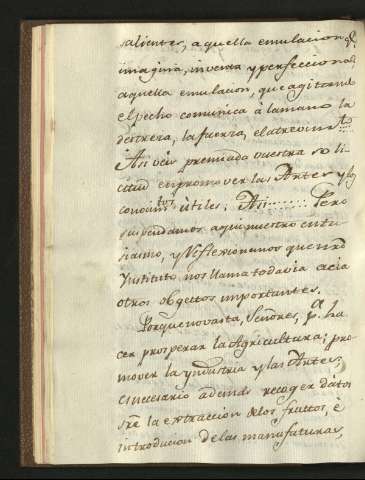 salientes, aquella emulacion q.
imagina, inventa y perfecciona;
aquella emulacion, que agitando
el pecho comunica à la mano la
destreza, la fuerza, el atrevim.to
Asi veis premiada vuestra soli
citud en promover las Artes y los
conocim.tos utiles: Asi........ Pero
suspendamos aqui nuestro entu
siasmo, y Reflexionemos que nro
Ynstituto nos llama todavia acia
otros obgectos importantes.
Porque no vasta, Señores, p.a ha
cer prosperar la Agricultura; pro
mover la yndustria y las Artes:
es necesario ademas recoger datos
sre la extraccion de los fruttos, è
introducion de las manufaturas,